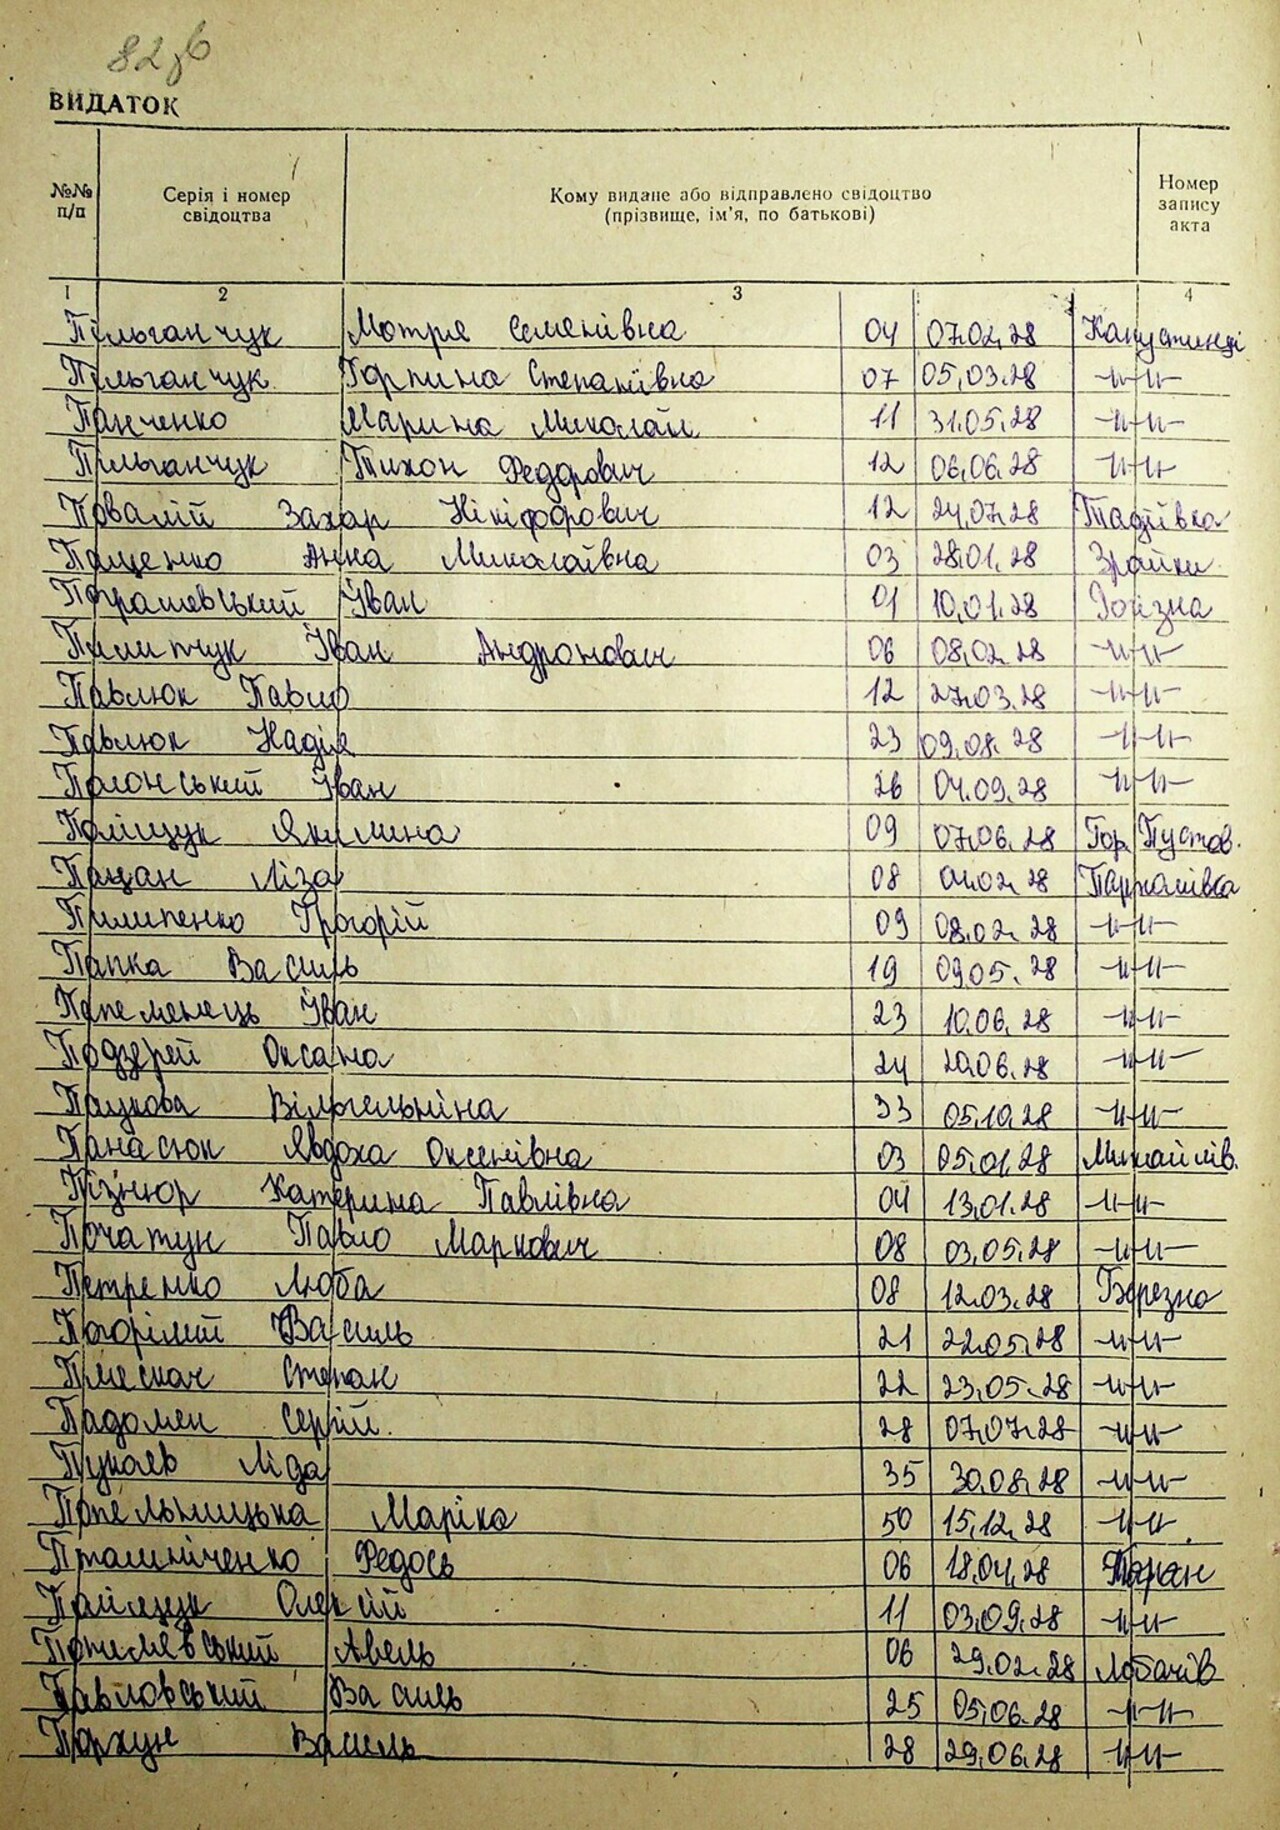 82зв
ВИДАТОК
№№ п/п
Серія і номер свідоцтва
Кому видане або відправлено свідоцтво (прізвище, ім'я, по батькові)
Номер запису акта
1 2 3 4
Пільганчук Мотря Семенівна 04 07.02.28 Капустинці
Пільганчук Горпина Степаніївна 07 05.03.28 -//-//-
Панченко Марина Миколаїв 11 31.05.28 -//-//-
Пільганчук Тихон Федорович 12 06.06.28 -//-//-
Повалій Захар Нікіфорович 12 24.07.28 Тадіївка
Пащенко Анна Миколаївна 03 28.01.28 Зрайки
Іван 01 10.01.28 Логвина
Пилипчук Іван Андронович 06 08.02.28 -//-//-
Павлюк Павло 12 27.03.28 -//-//-
Павлюк Надія 23 09.08.28 -//-//-
Полонський Іван 26 04.09.28 -//-//-
Поліщук Якилина 09 07.06.28 Гор. Пустов.
Пацан Ліза 08 01.02.28 Пархомівка
Пилипенко Грогорій 09 08.02.28 -//-//-
Папка Василь 19 09.05.28 -//-//-
Іван 23 10.06.28 -//-//-
Подзерей Оксана 24 20.06.28 -//-//-
Паукова Вільгельніна 33 05.10.28 -//-//-
Панасюк Явдоха Оксенівна 03 05.01.28 Михайлів.
Пізнюр Катерина Павлівна 04 13.01.28 -//-//-
Початун Павло Маркович 08 03.05.28 -//-//-
Петренко Люба 08 12.03.28 Березно
Погорілий Василь 21 22.05.28 -//-//-
Плескач Степан 22 23.05.28 -//-//-
Падомен Сергій. 28 07.07.28 -//-//-
Пукаєв Ліда 35 30.08.28 -//-//-
Попельницька Маріка 50 15.12.28 -//-//-
Пташніченко Федось 06 18.04.28
Поліщук Олексій 11 03.09.28 -//-//-
Авель 06 29.02.28 Лобачів
Павловський Василь 25 05.06.28 -//-//-
Порхун Василь 28 29.06.28 -//-//-